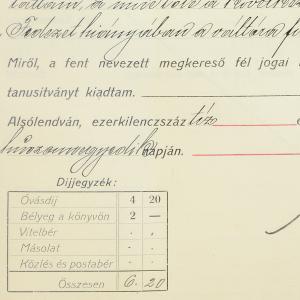 Fedezet hiányában a váltóra
Miről, a fent nevezett megkereső fél jogai
tanusitványt kiadtam.
Alsólendván, ezerkilenczszáz tíz
huszonnegyedik napján.
Dijjegyzék:
Óvásdíj 4 20
Bélyeg a könyvön 2 —
Vitelbér . .
Másolat . .
Közlés és postabér . .
Összesen 6. 20